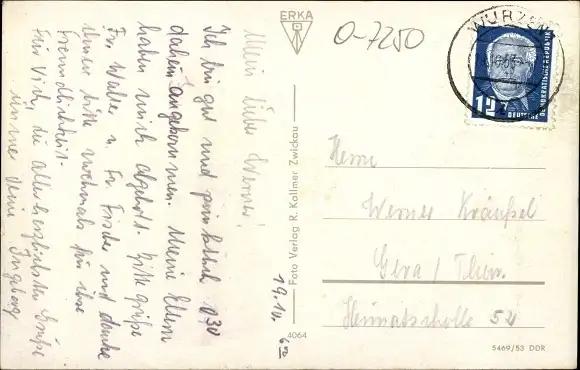 Mein lieber Werner!
Ich bin gut und pünktlich 0 30
daheim angekommen. Meine Eltern
haben mich abgeholt. Bitte grüße
Fr. Walter u. Fr. Fischer und danke
ihnen bitte nochmals für ihre
Freundlichkeit.
Für Dich, die allerherzlichsten Grüße
immer Deine Ingeborg
19.10.
ERKA
Foto Verlag R. Kallmer Zwickau
4064
0-7250
WURZEN
12
DEUTSCHE DEMOKRATISCHE REPUBLIK
Herrn
Werner Kräußel
Gera / Thür.
Heimatscholle 52
5469/53 DDR